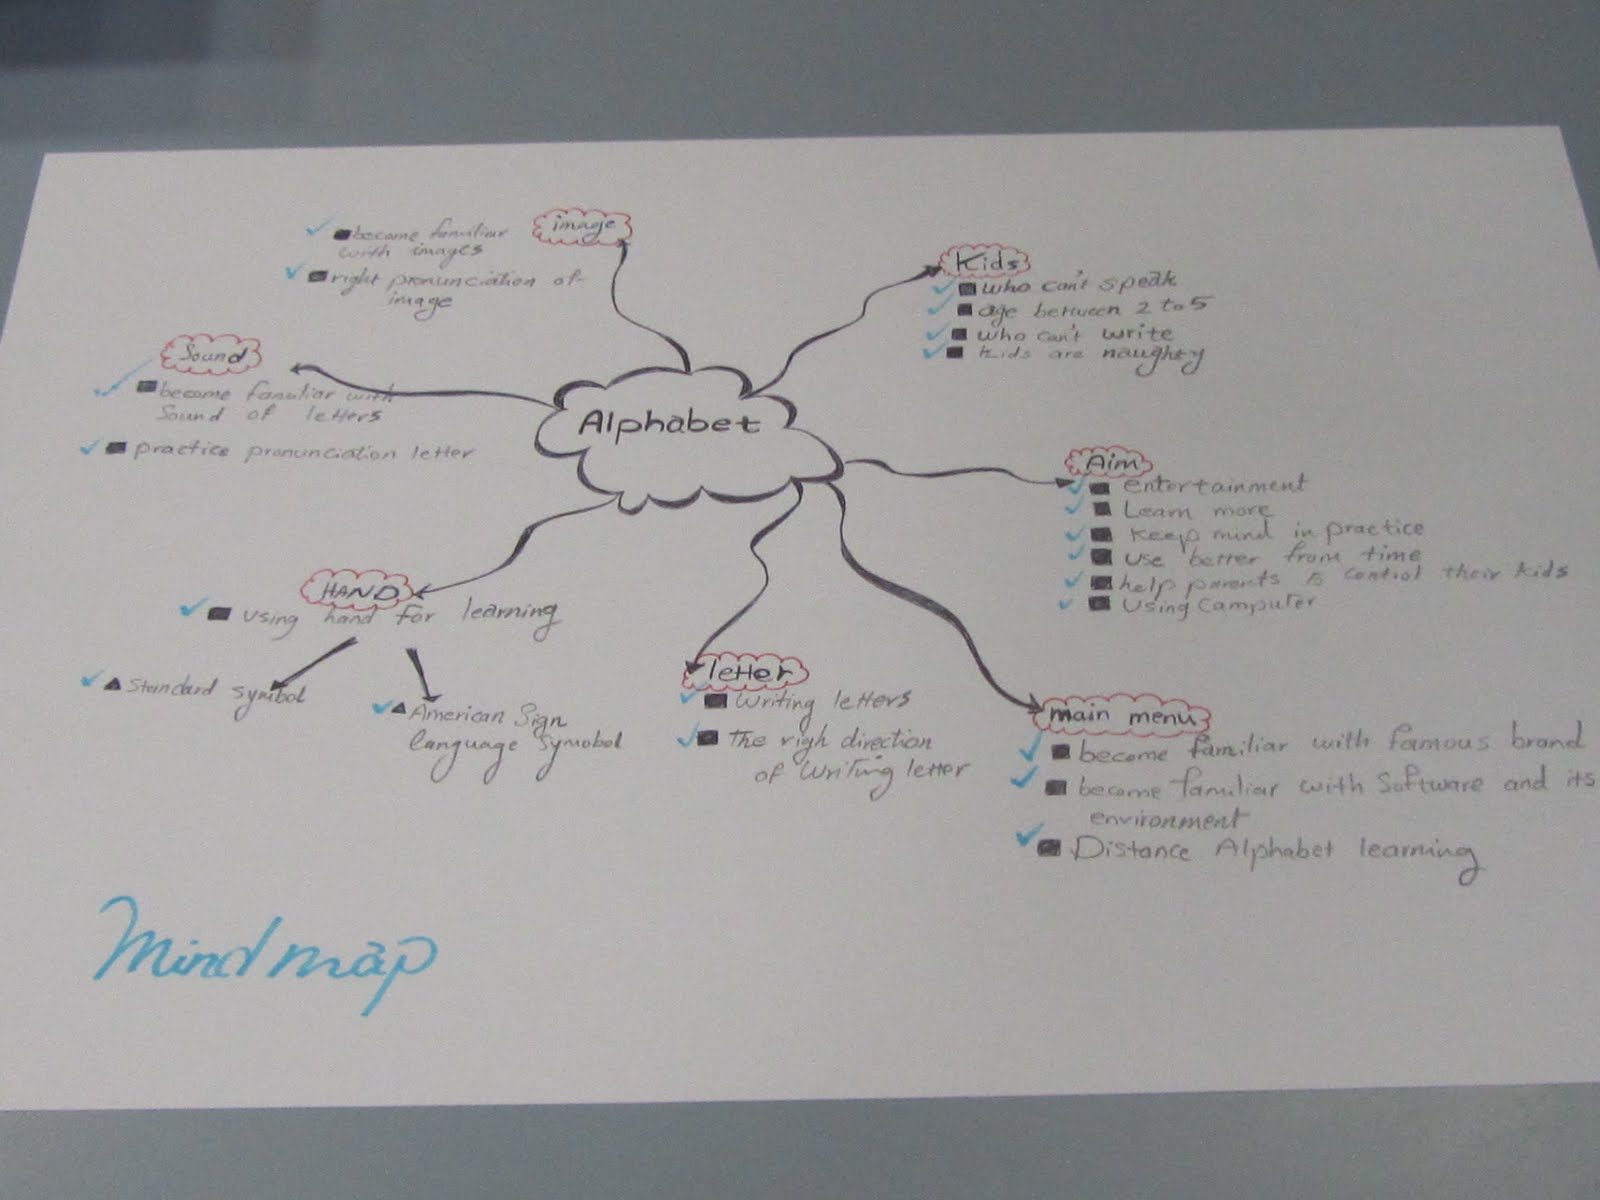 Alphabet
image
become familiar
with images
right pronunciation of
image
Kids
who can't speak
age between 2 to 5
who can't write
Kids are naughty
Sound
become familiar with
Sound of letters
practice pronunciation letter
Aim
entertainment
Learn more
Keep mind in practice
use better from time
help parents to control their kids
Using Computer
HAND
using hand for learning
Standard symbol
American Sign
language symobol
letter
Writing letters
The righ direction
of writing letter
main menu
become familiar with famous brand
become familiar with Software and its
environment
Distance Alphabet learning
Mind map